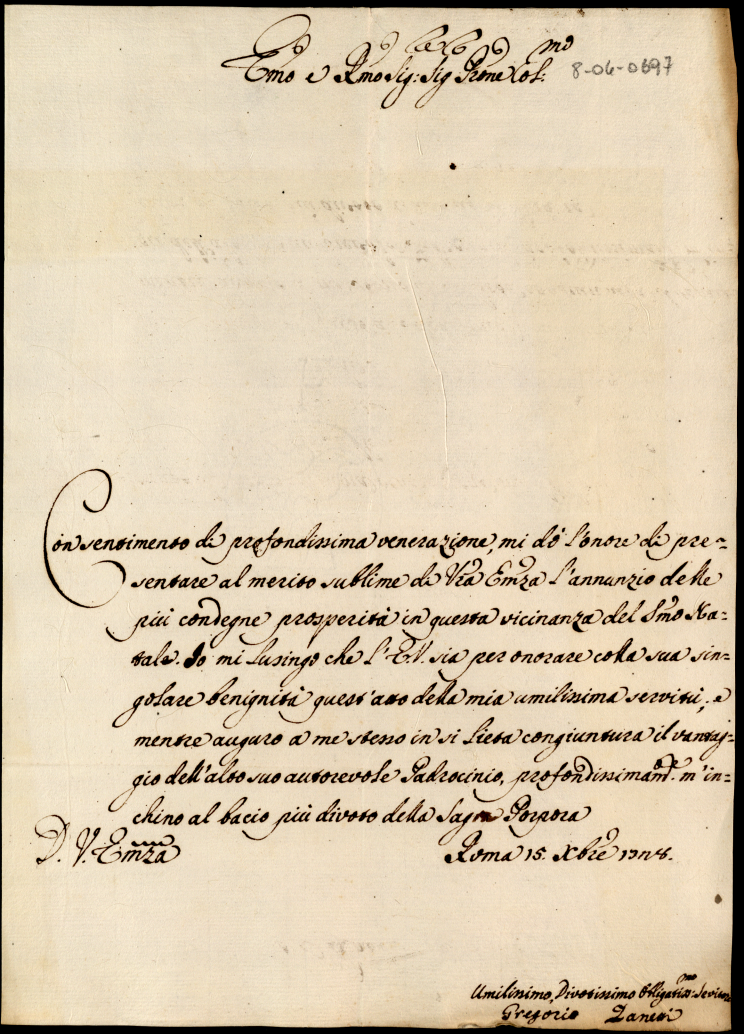 Emo e Rmo Sig: Sig Prone Col:mo
8-06-0697
Con sentimento di profondissima venerazione, mi dò l'onore di pre=
sentare al merito sublime di Vra Emza l'annunzio delle
più condegne prosperità in questa vicinanza del Smo Na=
tale. Io mi lusingo che l'E.V. sia per onorare colla sua sin=
golare benignità quest'atto della mia umilissima servitù; e
mentre auguro a me stesso in si lieta congiuntura il vantag=
gio dell'alto suo autorevole Padrocinio, profondissimande. m'in=
chino al bacio più divoto della Sagra Porpora
D. V. Emza
Roma 15. Xbre
Umilissimo, Divotissimo Obligatissmo:
Gregorio Zanetti